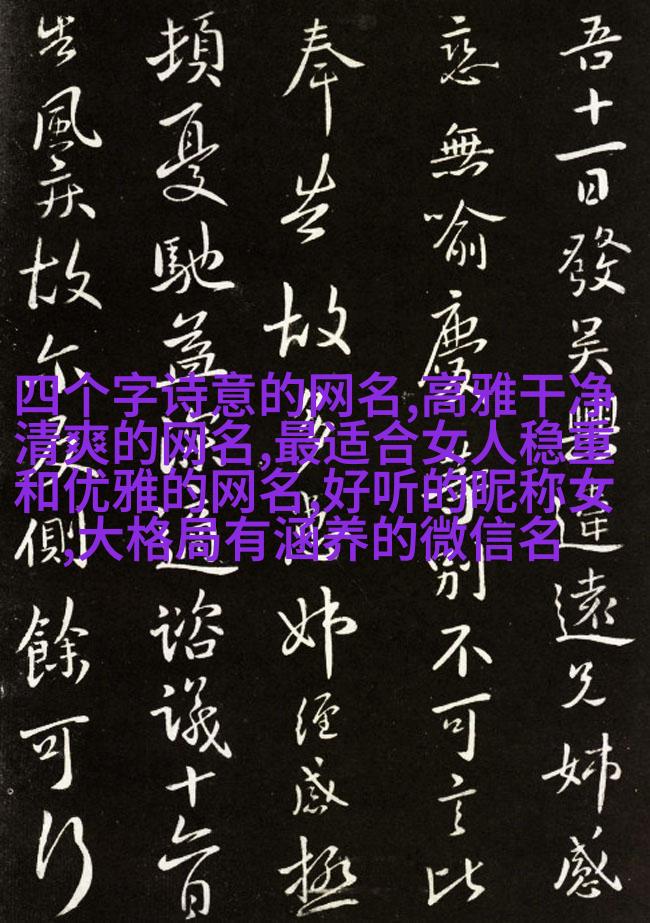 吾十一日發吳興違遠兄姊感
戀無喻慶等別不可言比
奉告故多患姊經感極
頓憂馳益深遠諮議十六日
告風疾故尔發側餘可行
四个字诗意的网名,高雅干净
清爽的网名,最适合女人稳重
和优雅的网名,好听的昵称女
,大格局有涵养的微信名